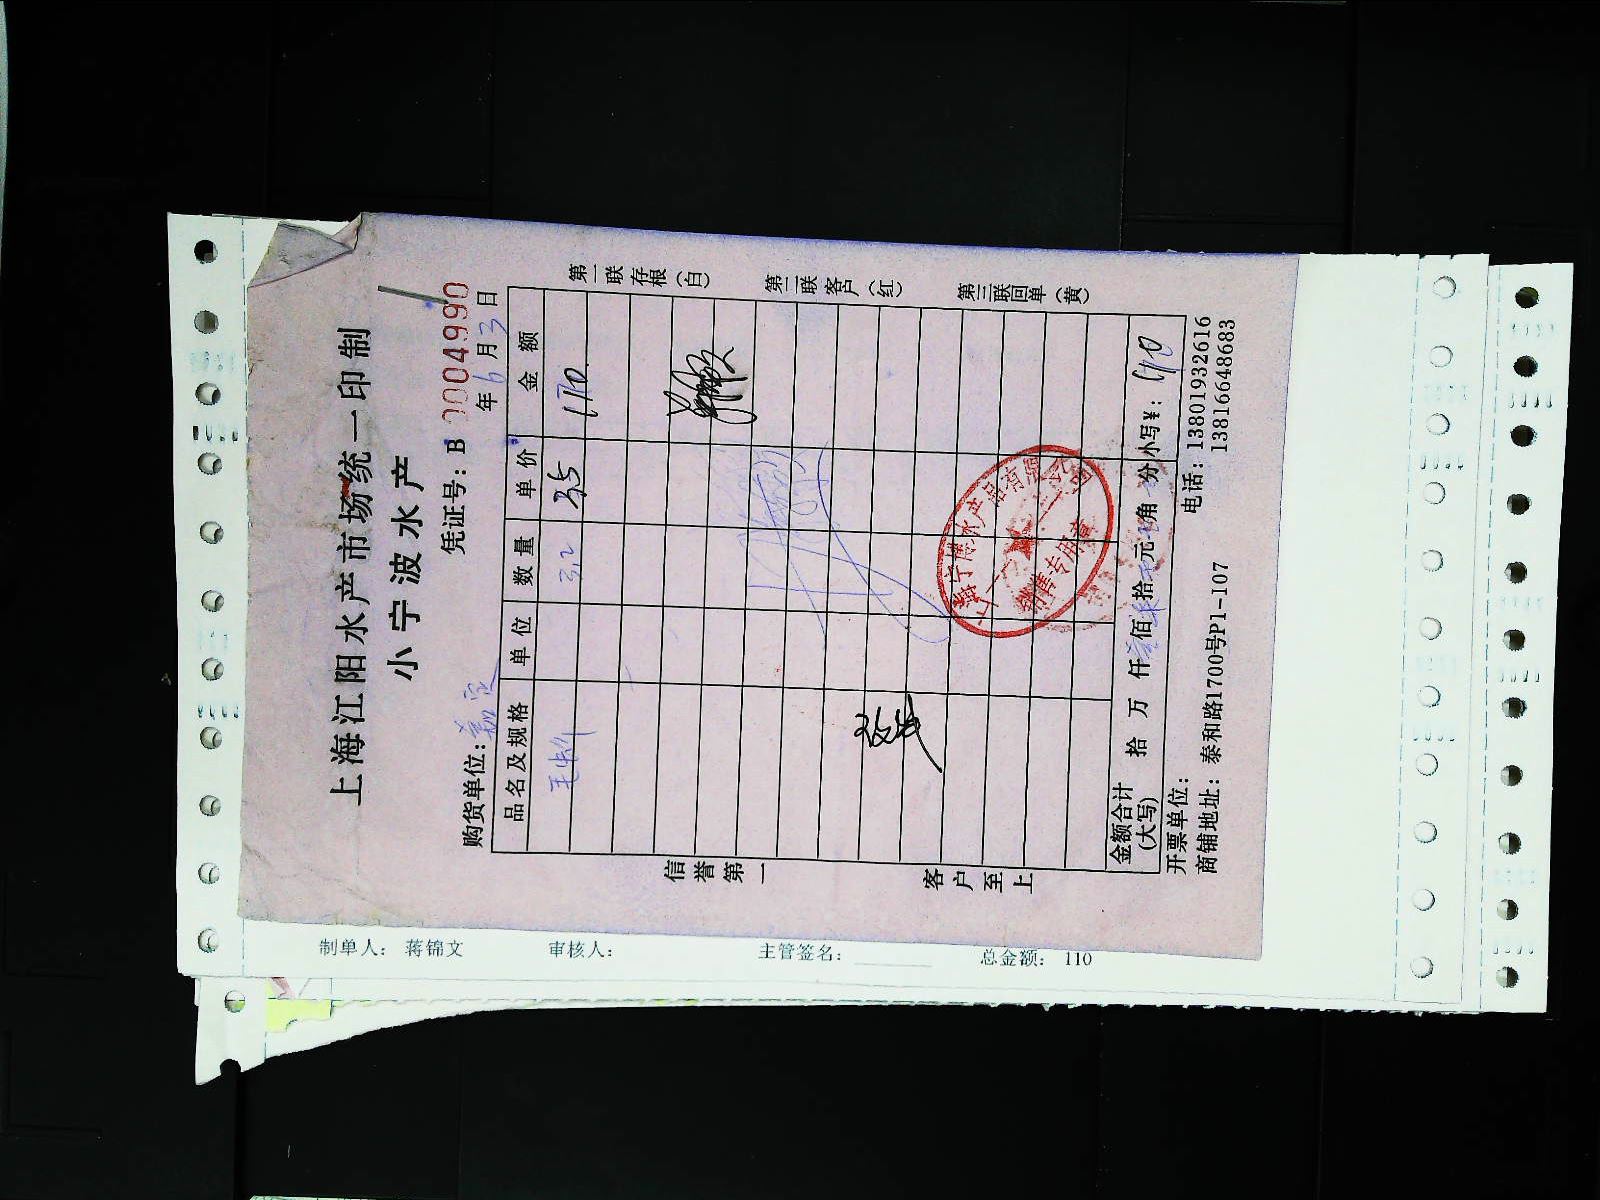 上海江阳水产市场统一印制
小宁波水产
凭证号：B 0004990
购货单位：嘉定 年6月3日
品名及规格 单位 数量 单价 金额
毛蚶 3.2 35 110
第一联存根（白）
第二联客户（红）
第三联回单（黄）
信誉第一
客户至上
产品有限公司
销售专用章
金额合计（大写） 拾 万 仟 佰 拾 元 角 分 小写¥：110
开票单位： 电话：13801932616
商铺地址：泰和路1700号P1-107 13816648683
制单人： 蒋锦文 审核人： 主管签名： 总金额： 110